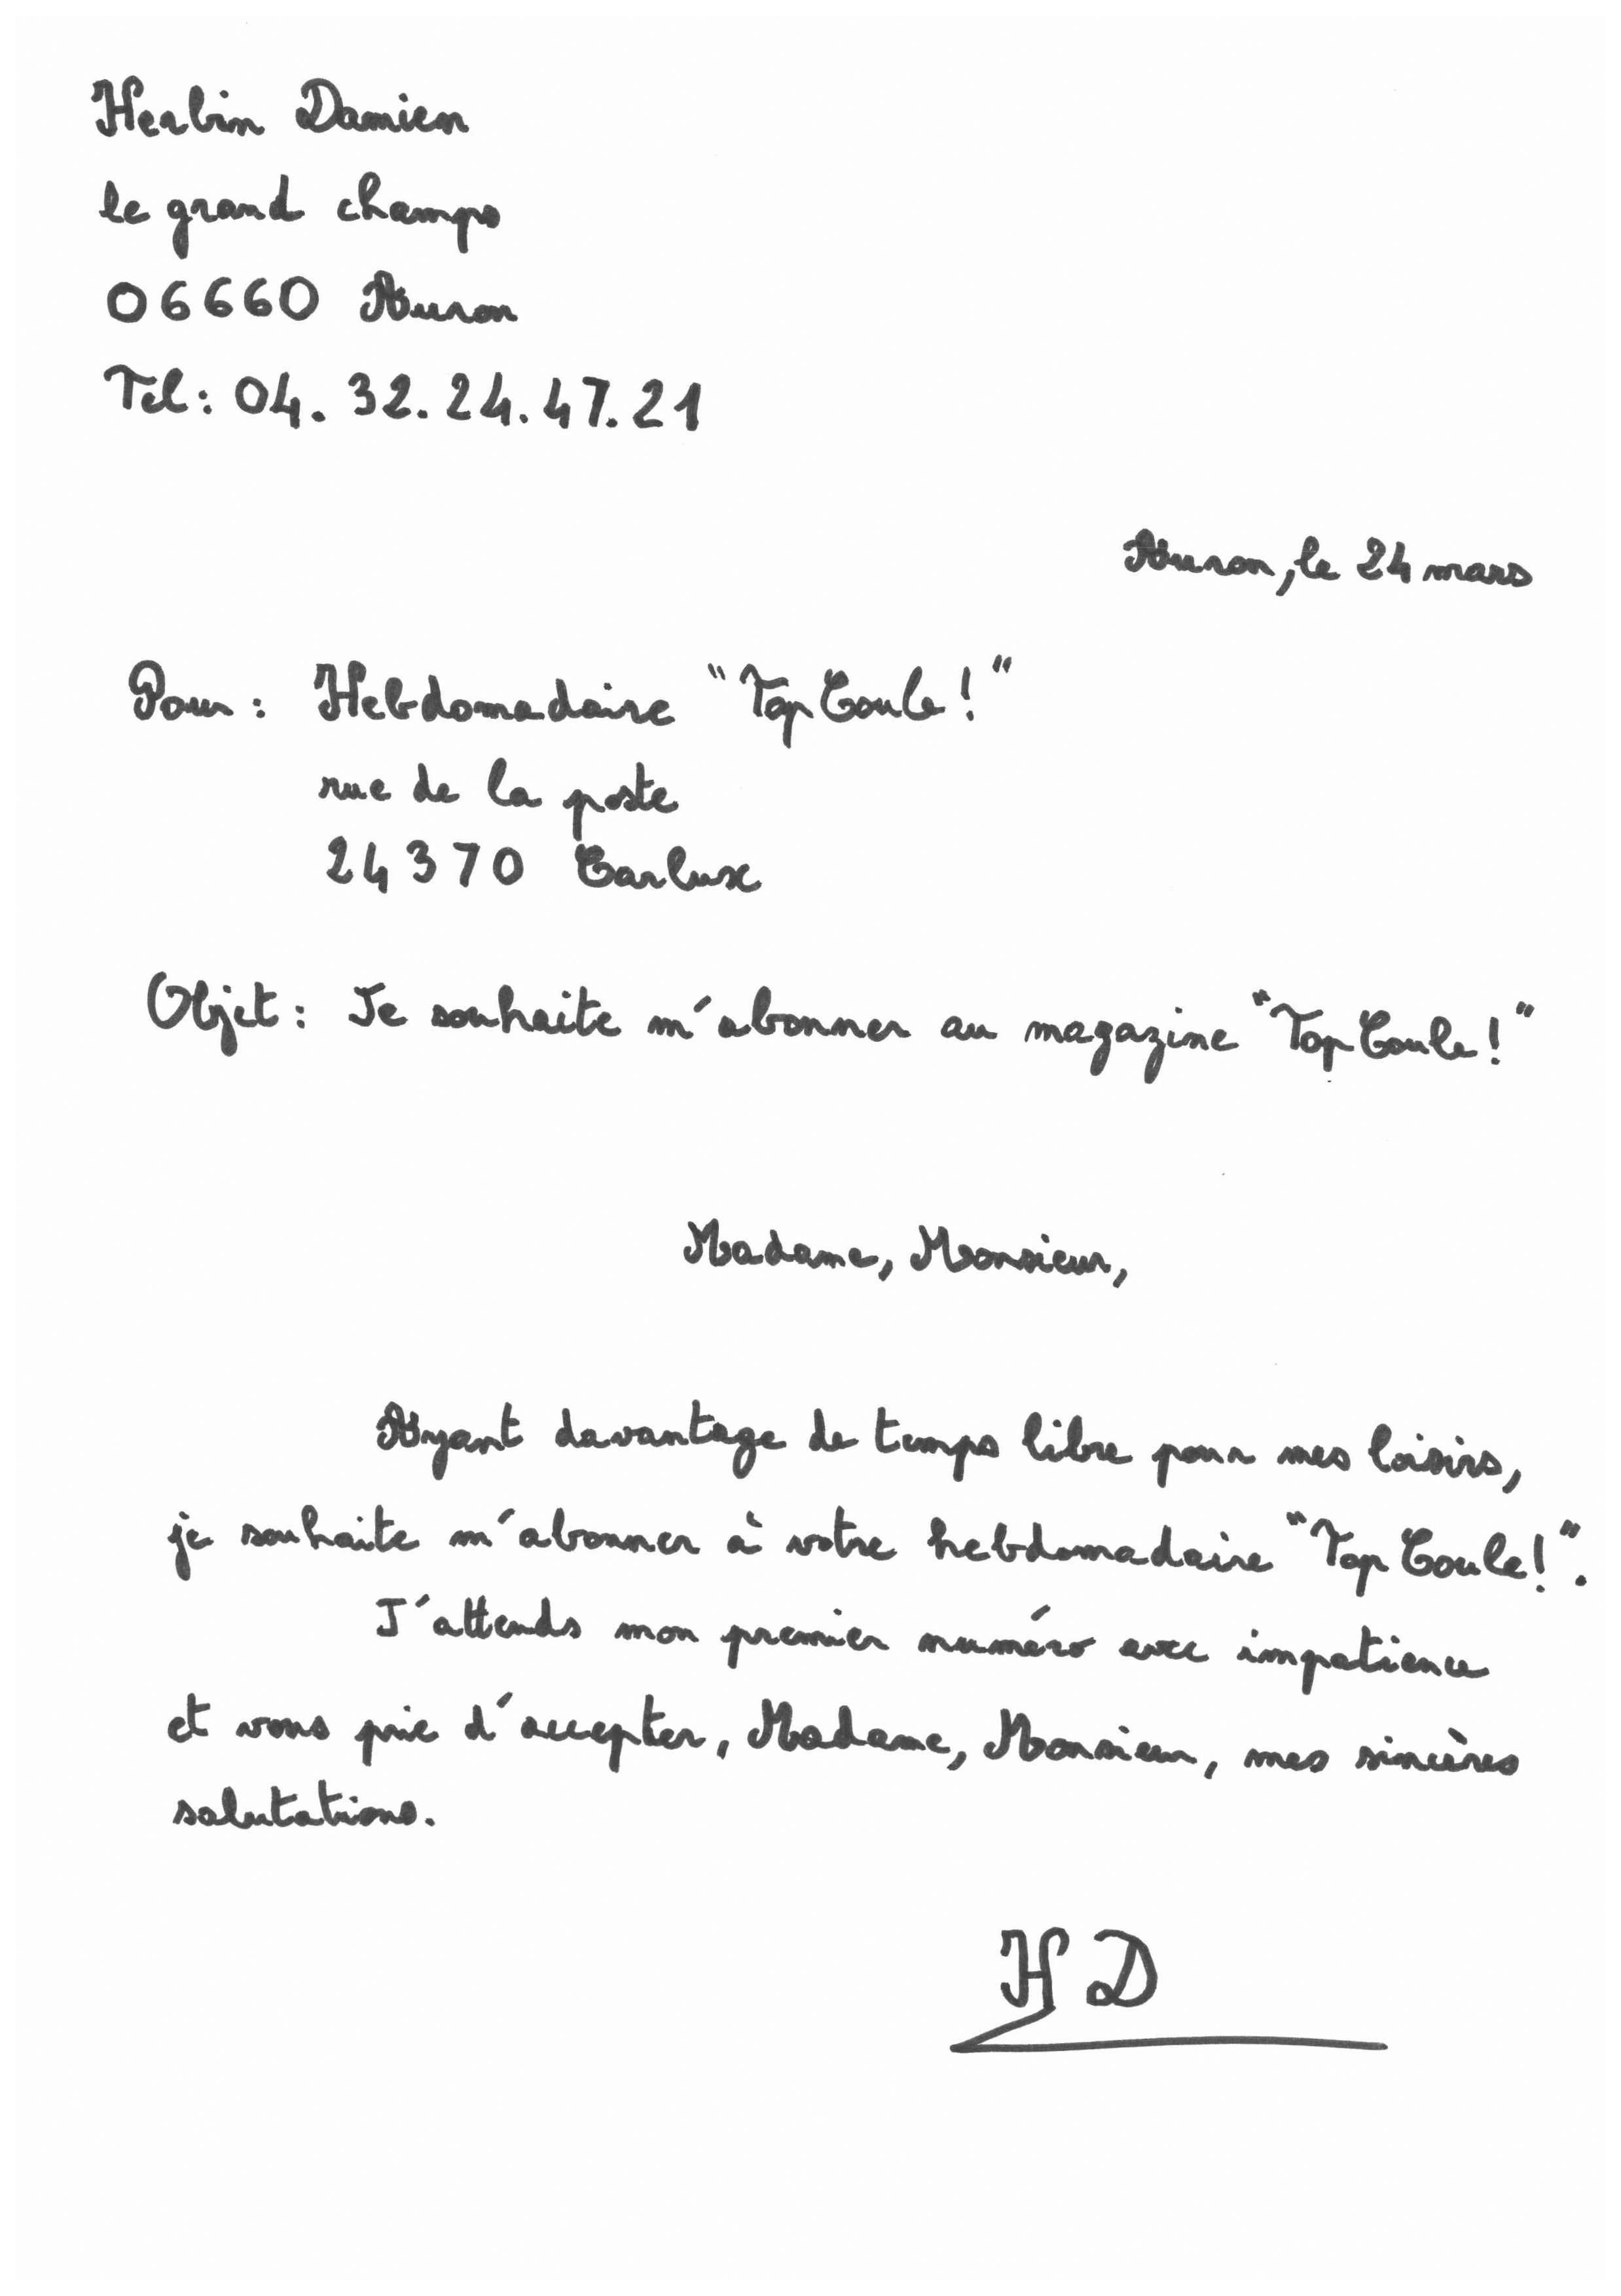 Herbin Damien
le grand champs
06660 Auron
Tel : 04.32.24.47.21
Auron, le 24 mars
Pour : Hebdomadaire "Top Coule !"
rue de la poste
24370 Carlux
Objet : Je souhaite m'abonner au magazine "Top Coule !"
Madame, Monsieur,
Ayant davantage de temps libre pour mes loisirs,
je souhaite m'abonner à votre hebdomadaire "Top Coule !".
J'attends mon premier numéro avec impatience
et vous prie d'accepter, Madame, Monsieur, mes sincères
salutations.
HD